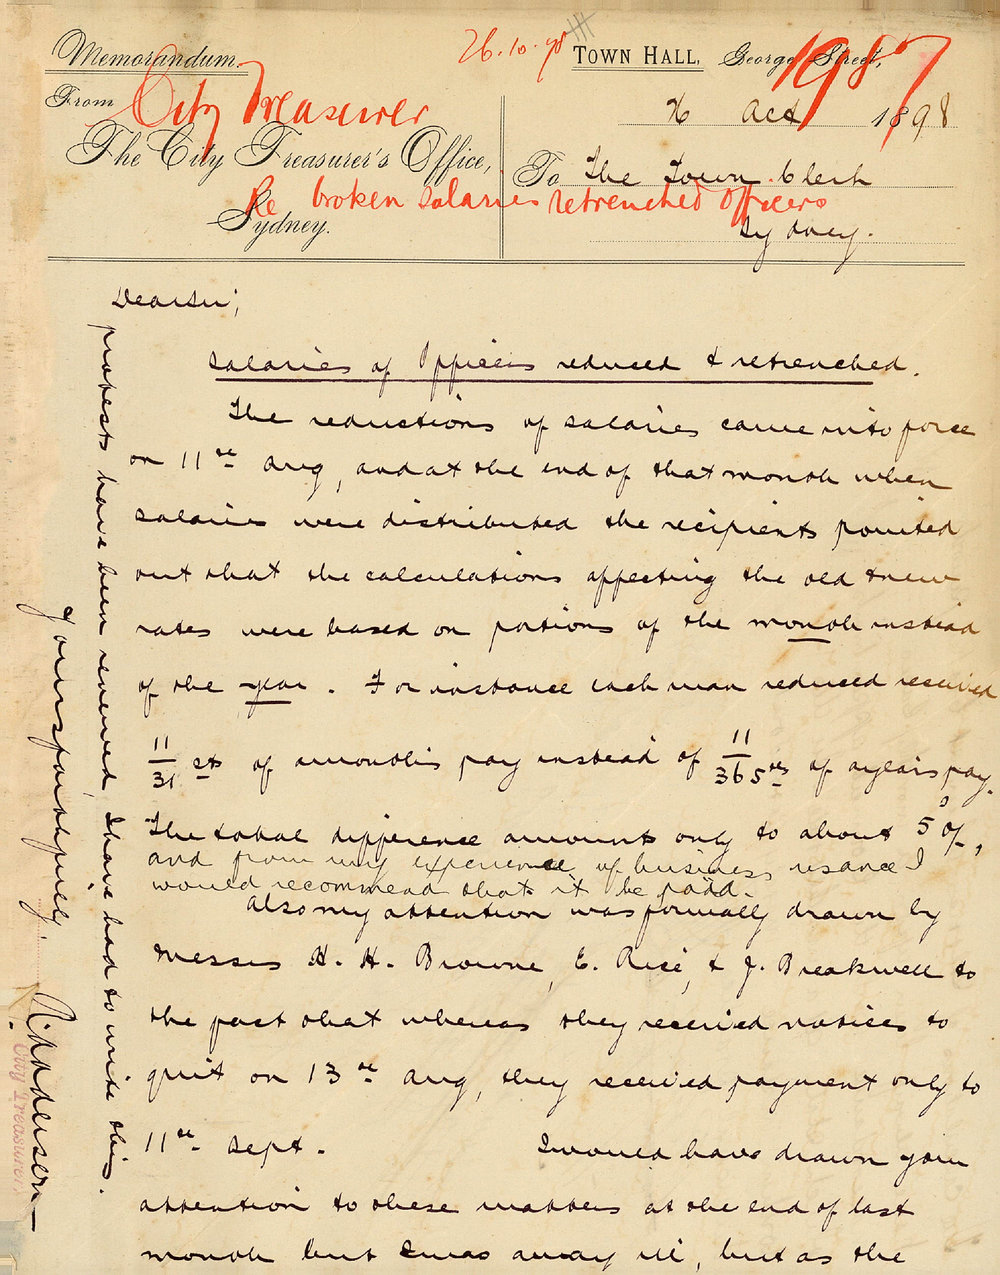 Memorandum.
26.10.98
Town Hall, George Street,
1987
From City Treasurer
26 Oct 1898
The City Treasurer's Office,
To The Town Clerk
Re broken salaries retrenched Officers
Sydney.
Sydney.
Dear Sir,
Salaries of Officers reduced & retrenched.
The reductions of salaries came into force
on 11th Aug, and at the end of that month when
salaries were distributed the recipients pointed
out that the calculations affecting the old & new
rates were based on portions of the month instead
of the year. For instance each man reduced received
11/31sts of a month's pay instead of 11/365ths of a year's pay.
The total difference amounts only to about £5 0/-,
and from my experience of business usance I
would recommend that it be paid.
Also my attention was formally drawn by
Messrs H. H. Browne, E. Rice, & J. Breakwell to
the fact that whereas they received notices to
quit on 13th Aug, they received payment only to
11th Sept. I would have drawn your
attention to these matters at the end of last
month but I was away ill, but as the
protests have been renewed, I have had to write this.
Yours faithfully.
City Treasurer